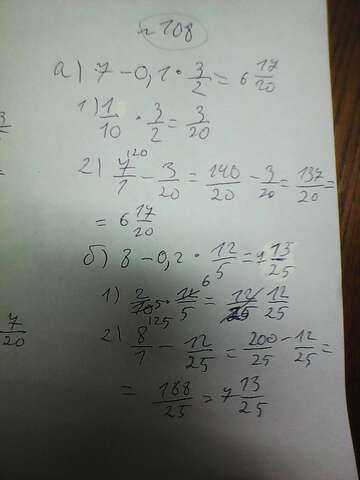 № 108
а) 7 - 0,1 · 3/2 = 6 17/20
1) 1/10 · 3/2 = 3/20
2) 7/1 - 3/20 = 140/20 - 3/20 = 137/20 =
= 6 17/20
б) 8 - 0,2 · 12/5 = 7 13/25
1) 2/10 · 12/5 = 12/25 12/25
2) 8/1 - 12/25 = 200/25 - 12/25 =
= 188/25 = 7 13/25
7/20